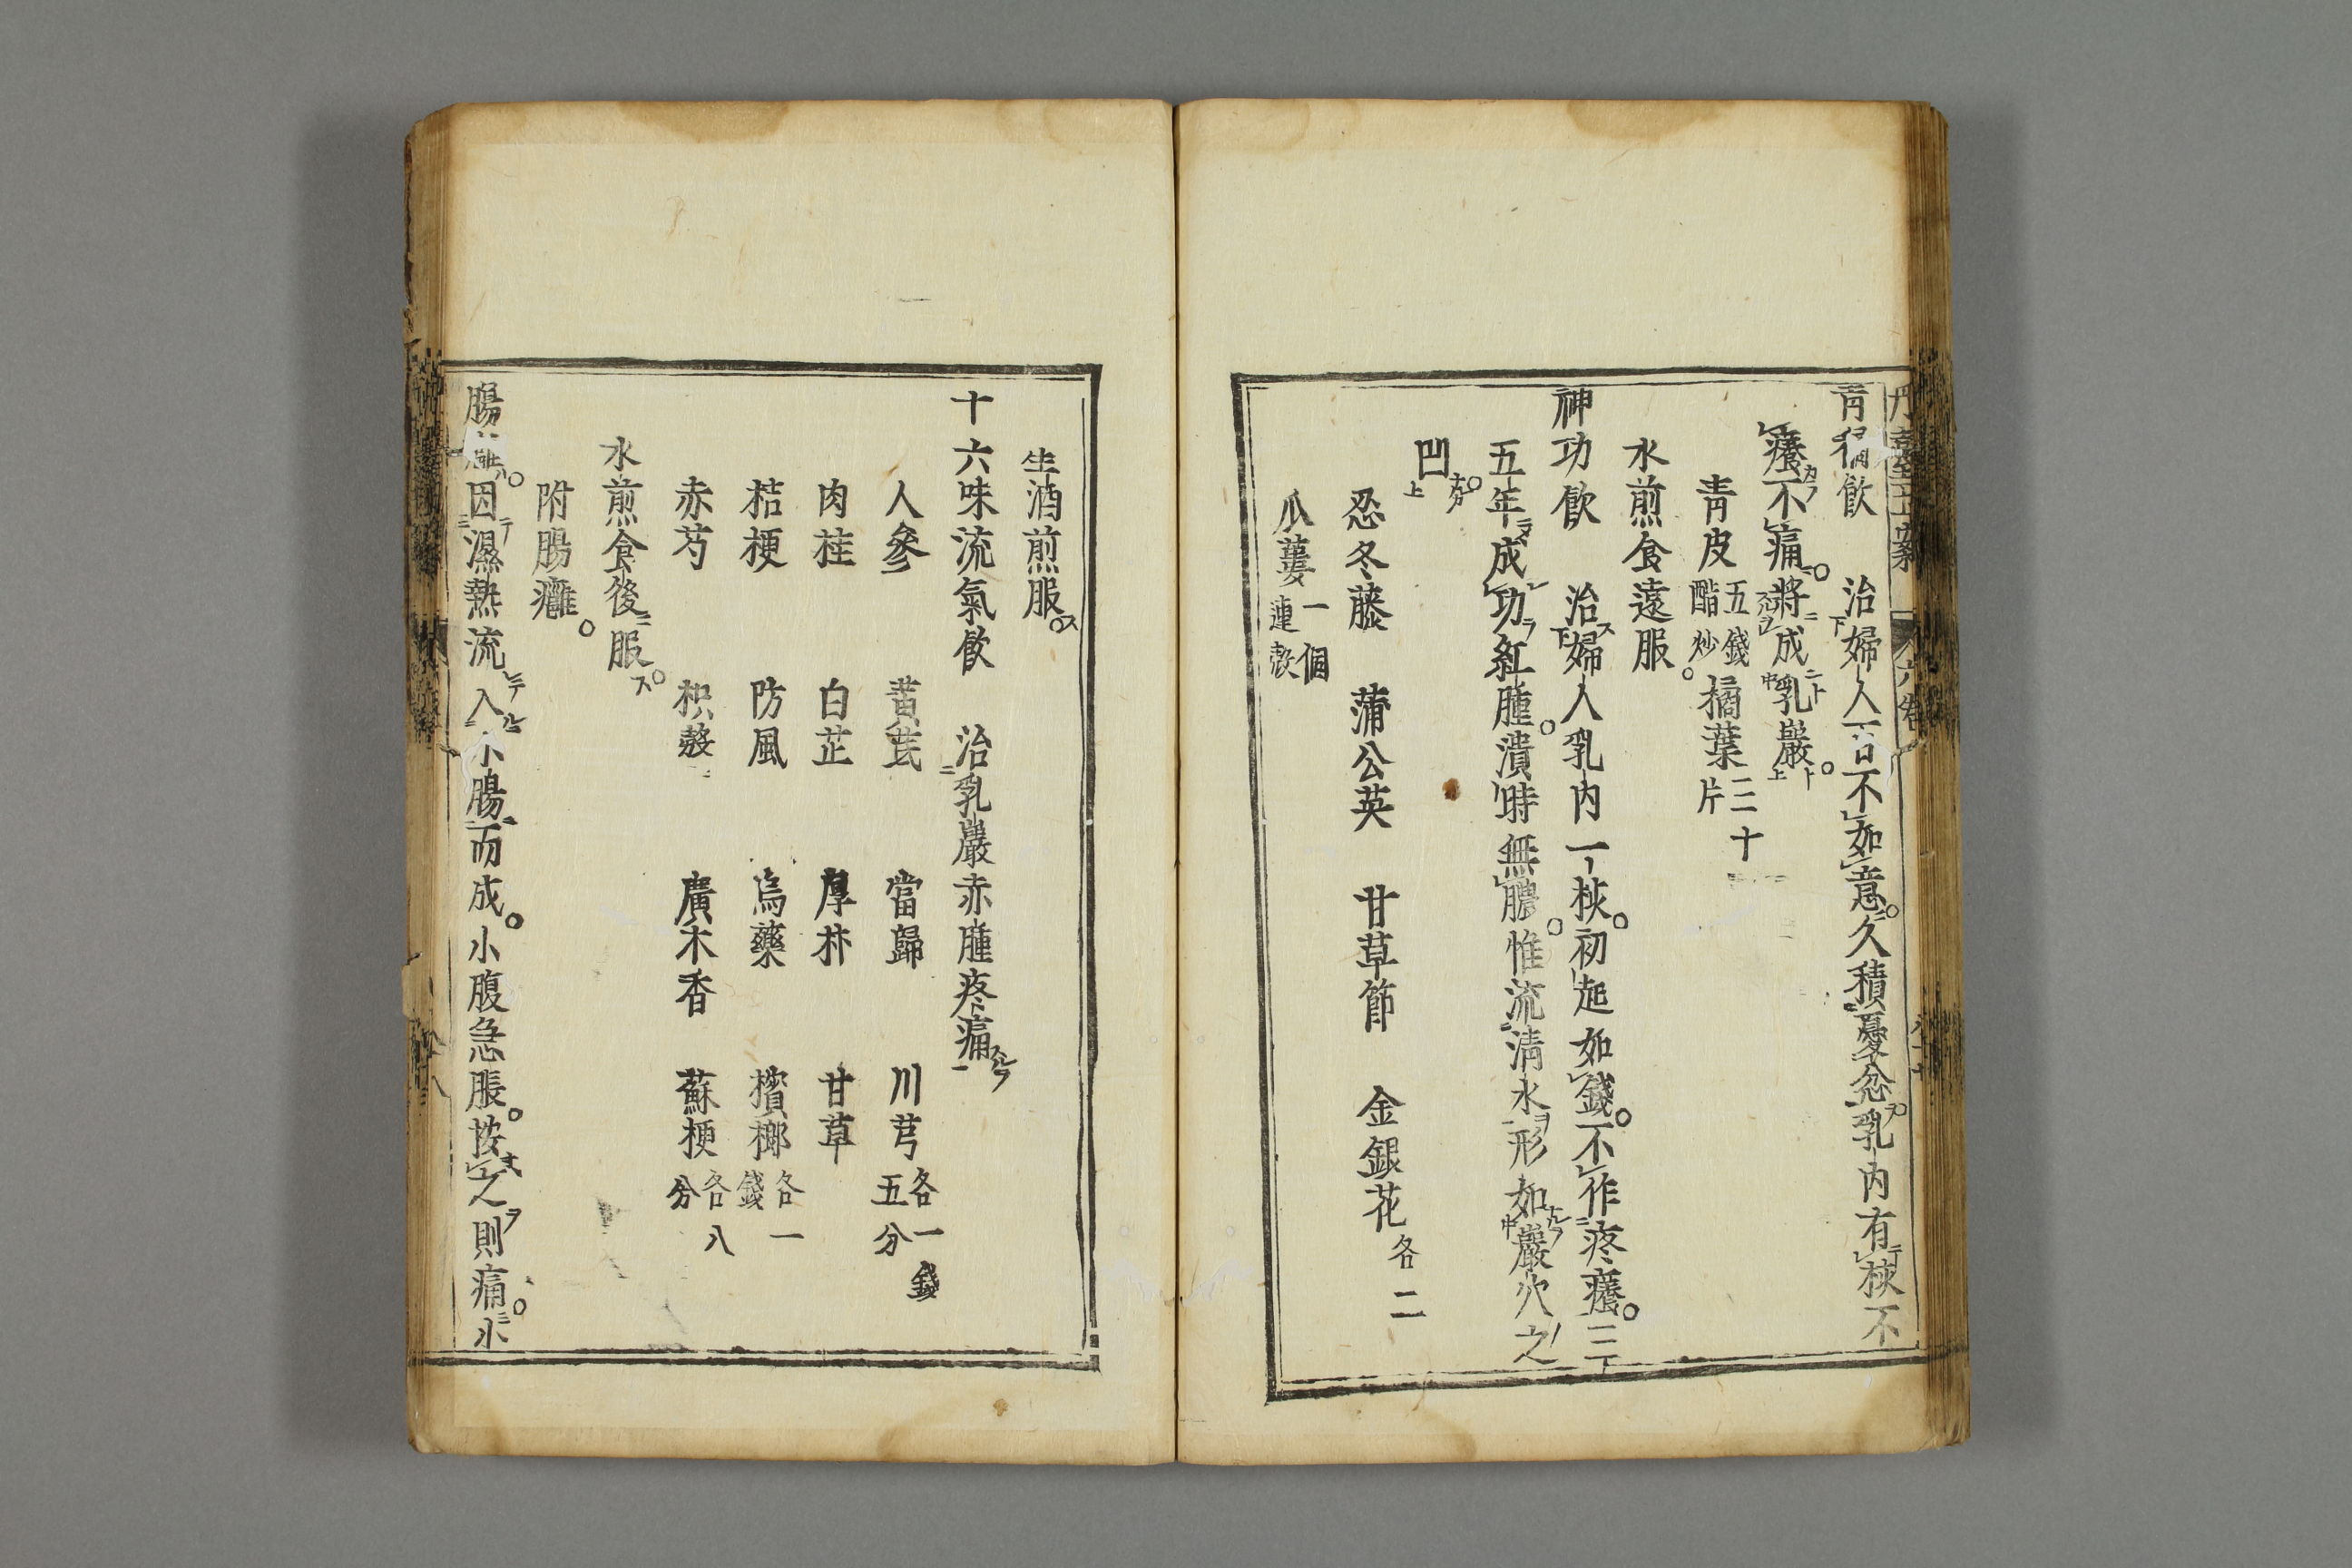 青橘飲 治婦人百不如意久積憂忿乳内有核不
癢不痛將成乳巖
青皮 五錢 醋炒 橘葉 三十片
水煎食遠服
神功飲 治婦人乳内一核初起如錢不作疼癢三
五年成功紅腫潰時無膿惟流清水形如巖穴之
凹
忍冬藤 蒲公英 甘草節 金銀花 各二
瓜蔞 一個 連殼
生酒煎服
十六味流氣飲 治乳巖赤腫疼痛
人參 黃芪 當歸 川芎 各一錢五分
肉桂 白芷 厚朴 甘草
桔梗 防風 烏藥 檳榔 各一錢
赤芍 枳殼 廣木香 蘇梗 各八分
水煎食後服
附腸癰
腸癰因濕熱流入小腸而成小腹急脹按之則痛小